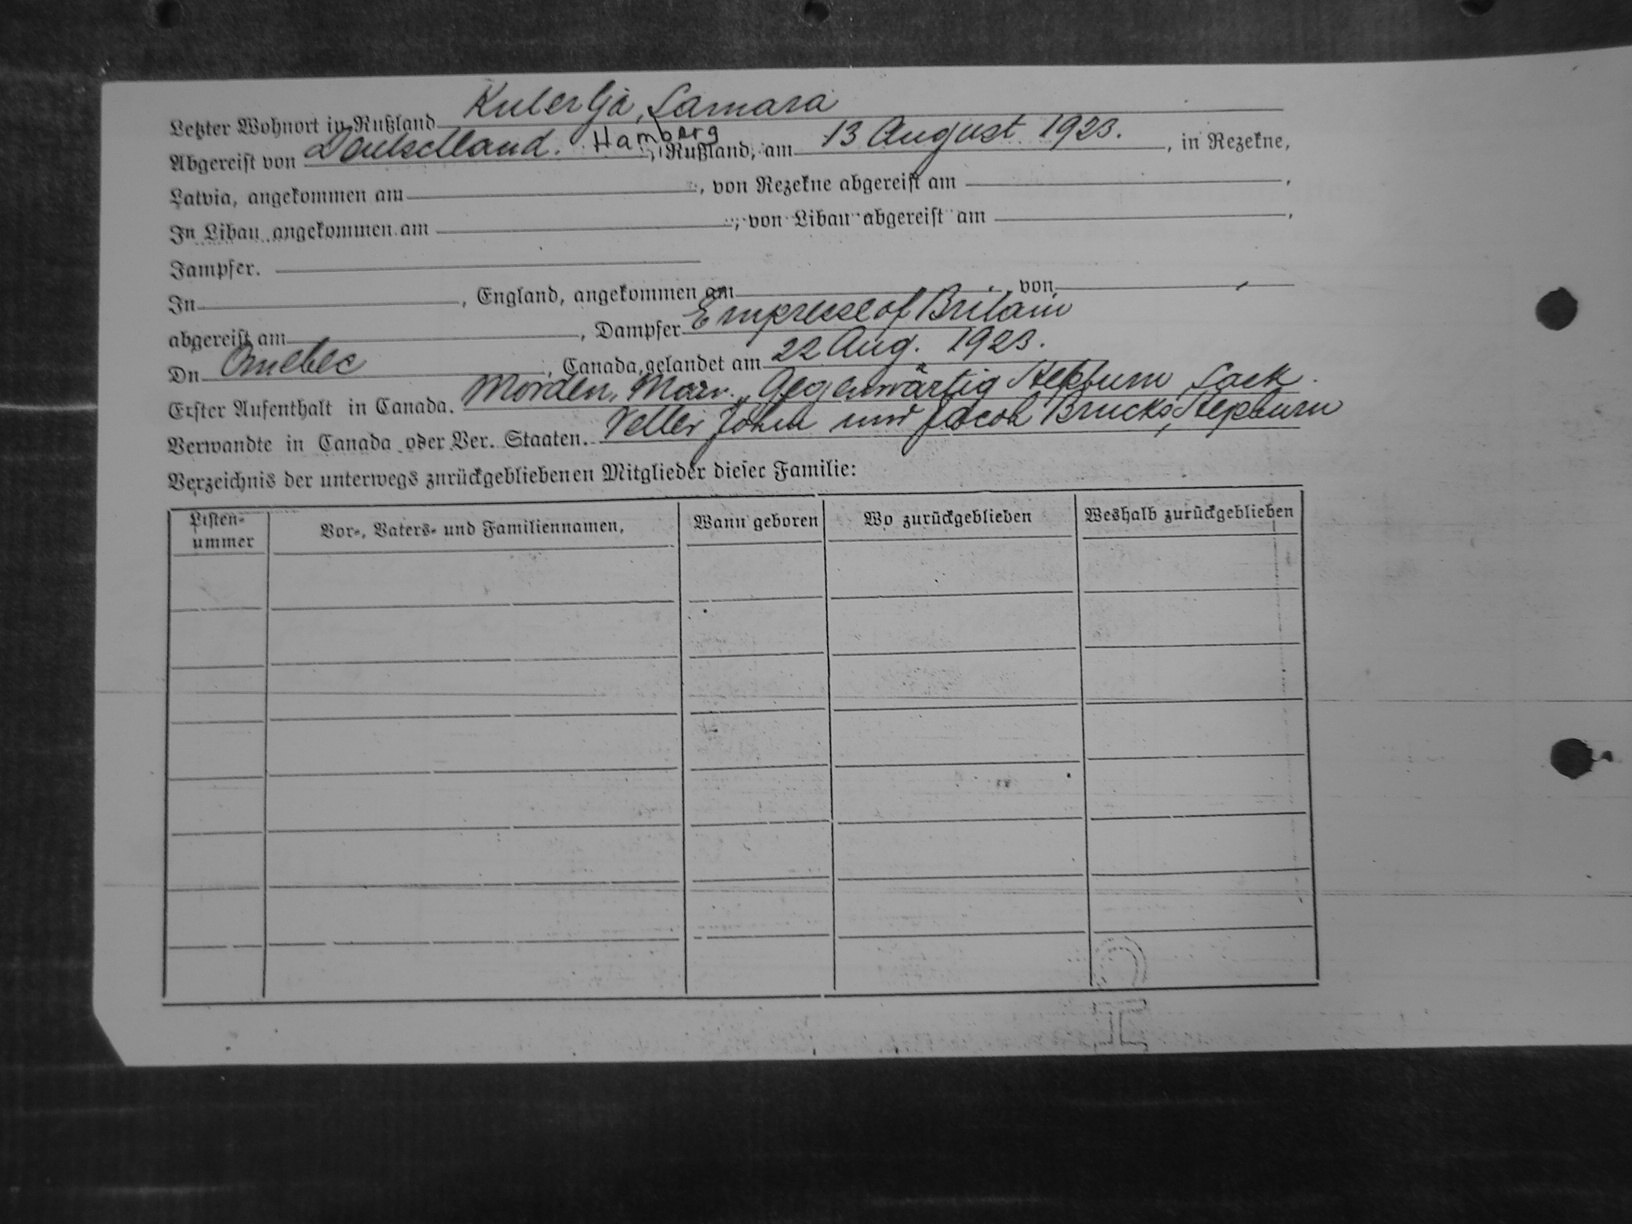 Letzter Wohnort in Rußland Kulerlja, Samara
Abgereist von Deutschland. Hamberg, Rußland, am 13 August 1923., in Rezekne,
Latvia, angekommen am, von Rezekne abgereist am,
In Libau angekommen am, von Libau abgereist am,
Jampfer.
In, England, angekommen am, von,
abgereist am, Dampfer Empresse of Britain
Dn Quebec, Canada, gelandet am 22 Aug. 1923.
Erster Aufenthalt in Canada. Morden, Man., Gegenwärtig Hepburn Sask.
Verwandte in Canada oder Ver. Staaten. Vetter John und Jacob Brucks, Hepburn
Verzeichnis der unterwegs zurückgebliebenen Mitglieder dieser Familie:
Listen-ummer Vor-, Vaters- und Familiennamen, Wann geboren Wo zurückgeblieben Weshalb zurückgeblieben